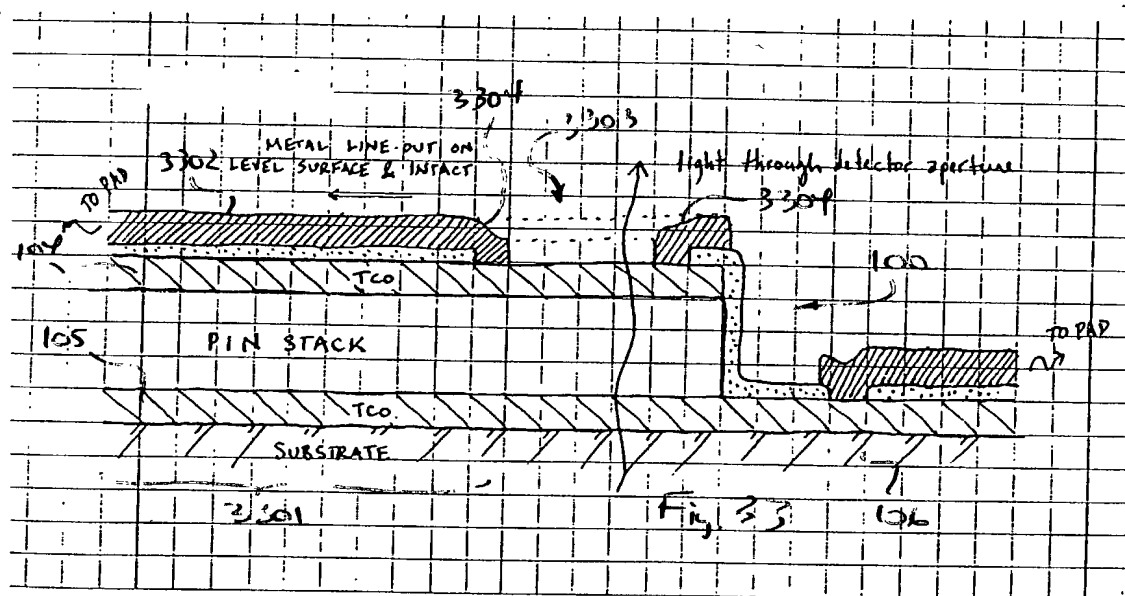 3304
3303
METAL LINE-OUT ON
3302 LEVEL SURFACE & INTACT
light through detector aperture
TO PAD
3304
104
TCO
100
PIN STACK
105
TO PAD
TCO
SUBSTRATE
3301
Fig. 33
106